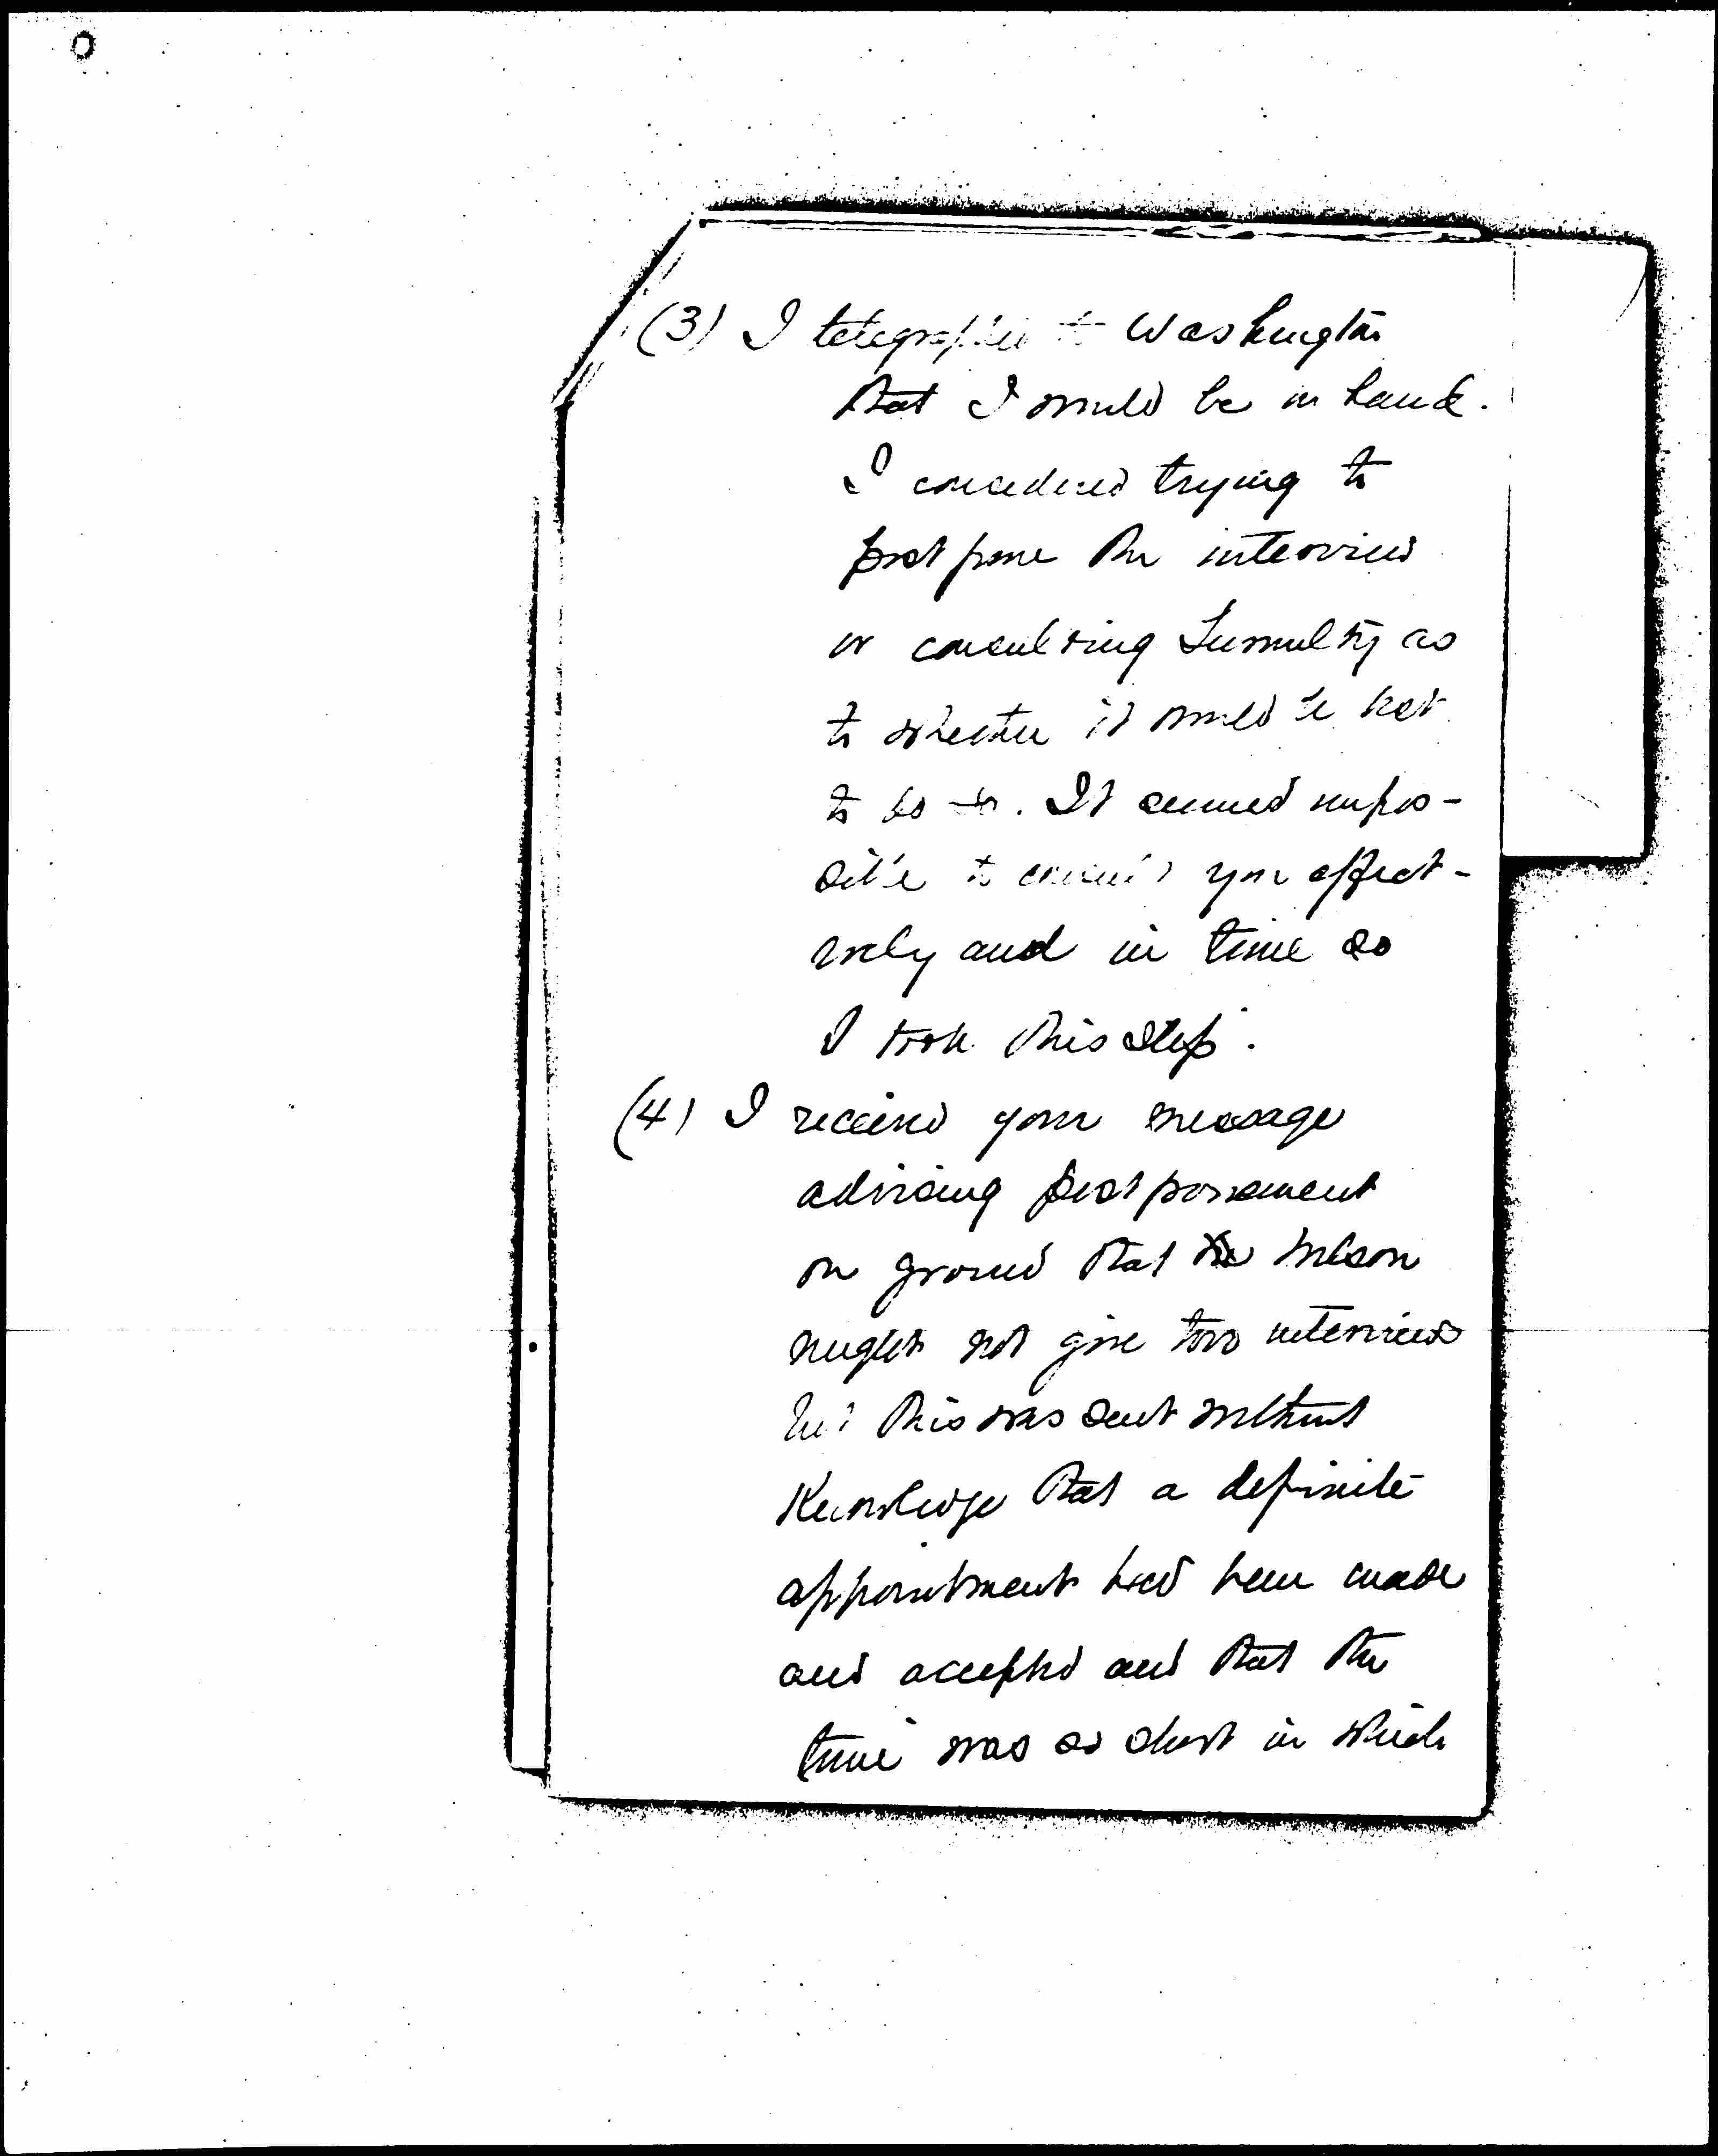 (3) I telegraphed to Washington
that I would be on hand.
I considered trying to
postpone the interview
or consulting Tumulty as
to whether it would be best
to do so. It seemed impos-
sible to consult you effect-
ively and in time so
I took this step.
(4) I received your message
advising postponement
on ground that Wilson
might not give two interviews
but this was sent without
knowledge that a definite
appointment had been made
and accepted and that the
time was so short in which